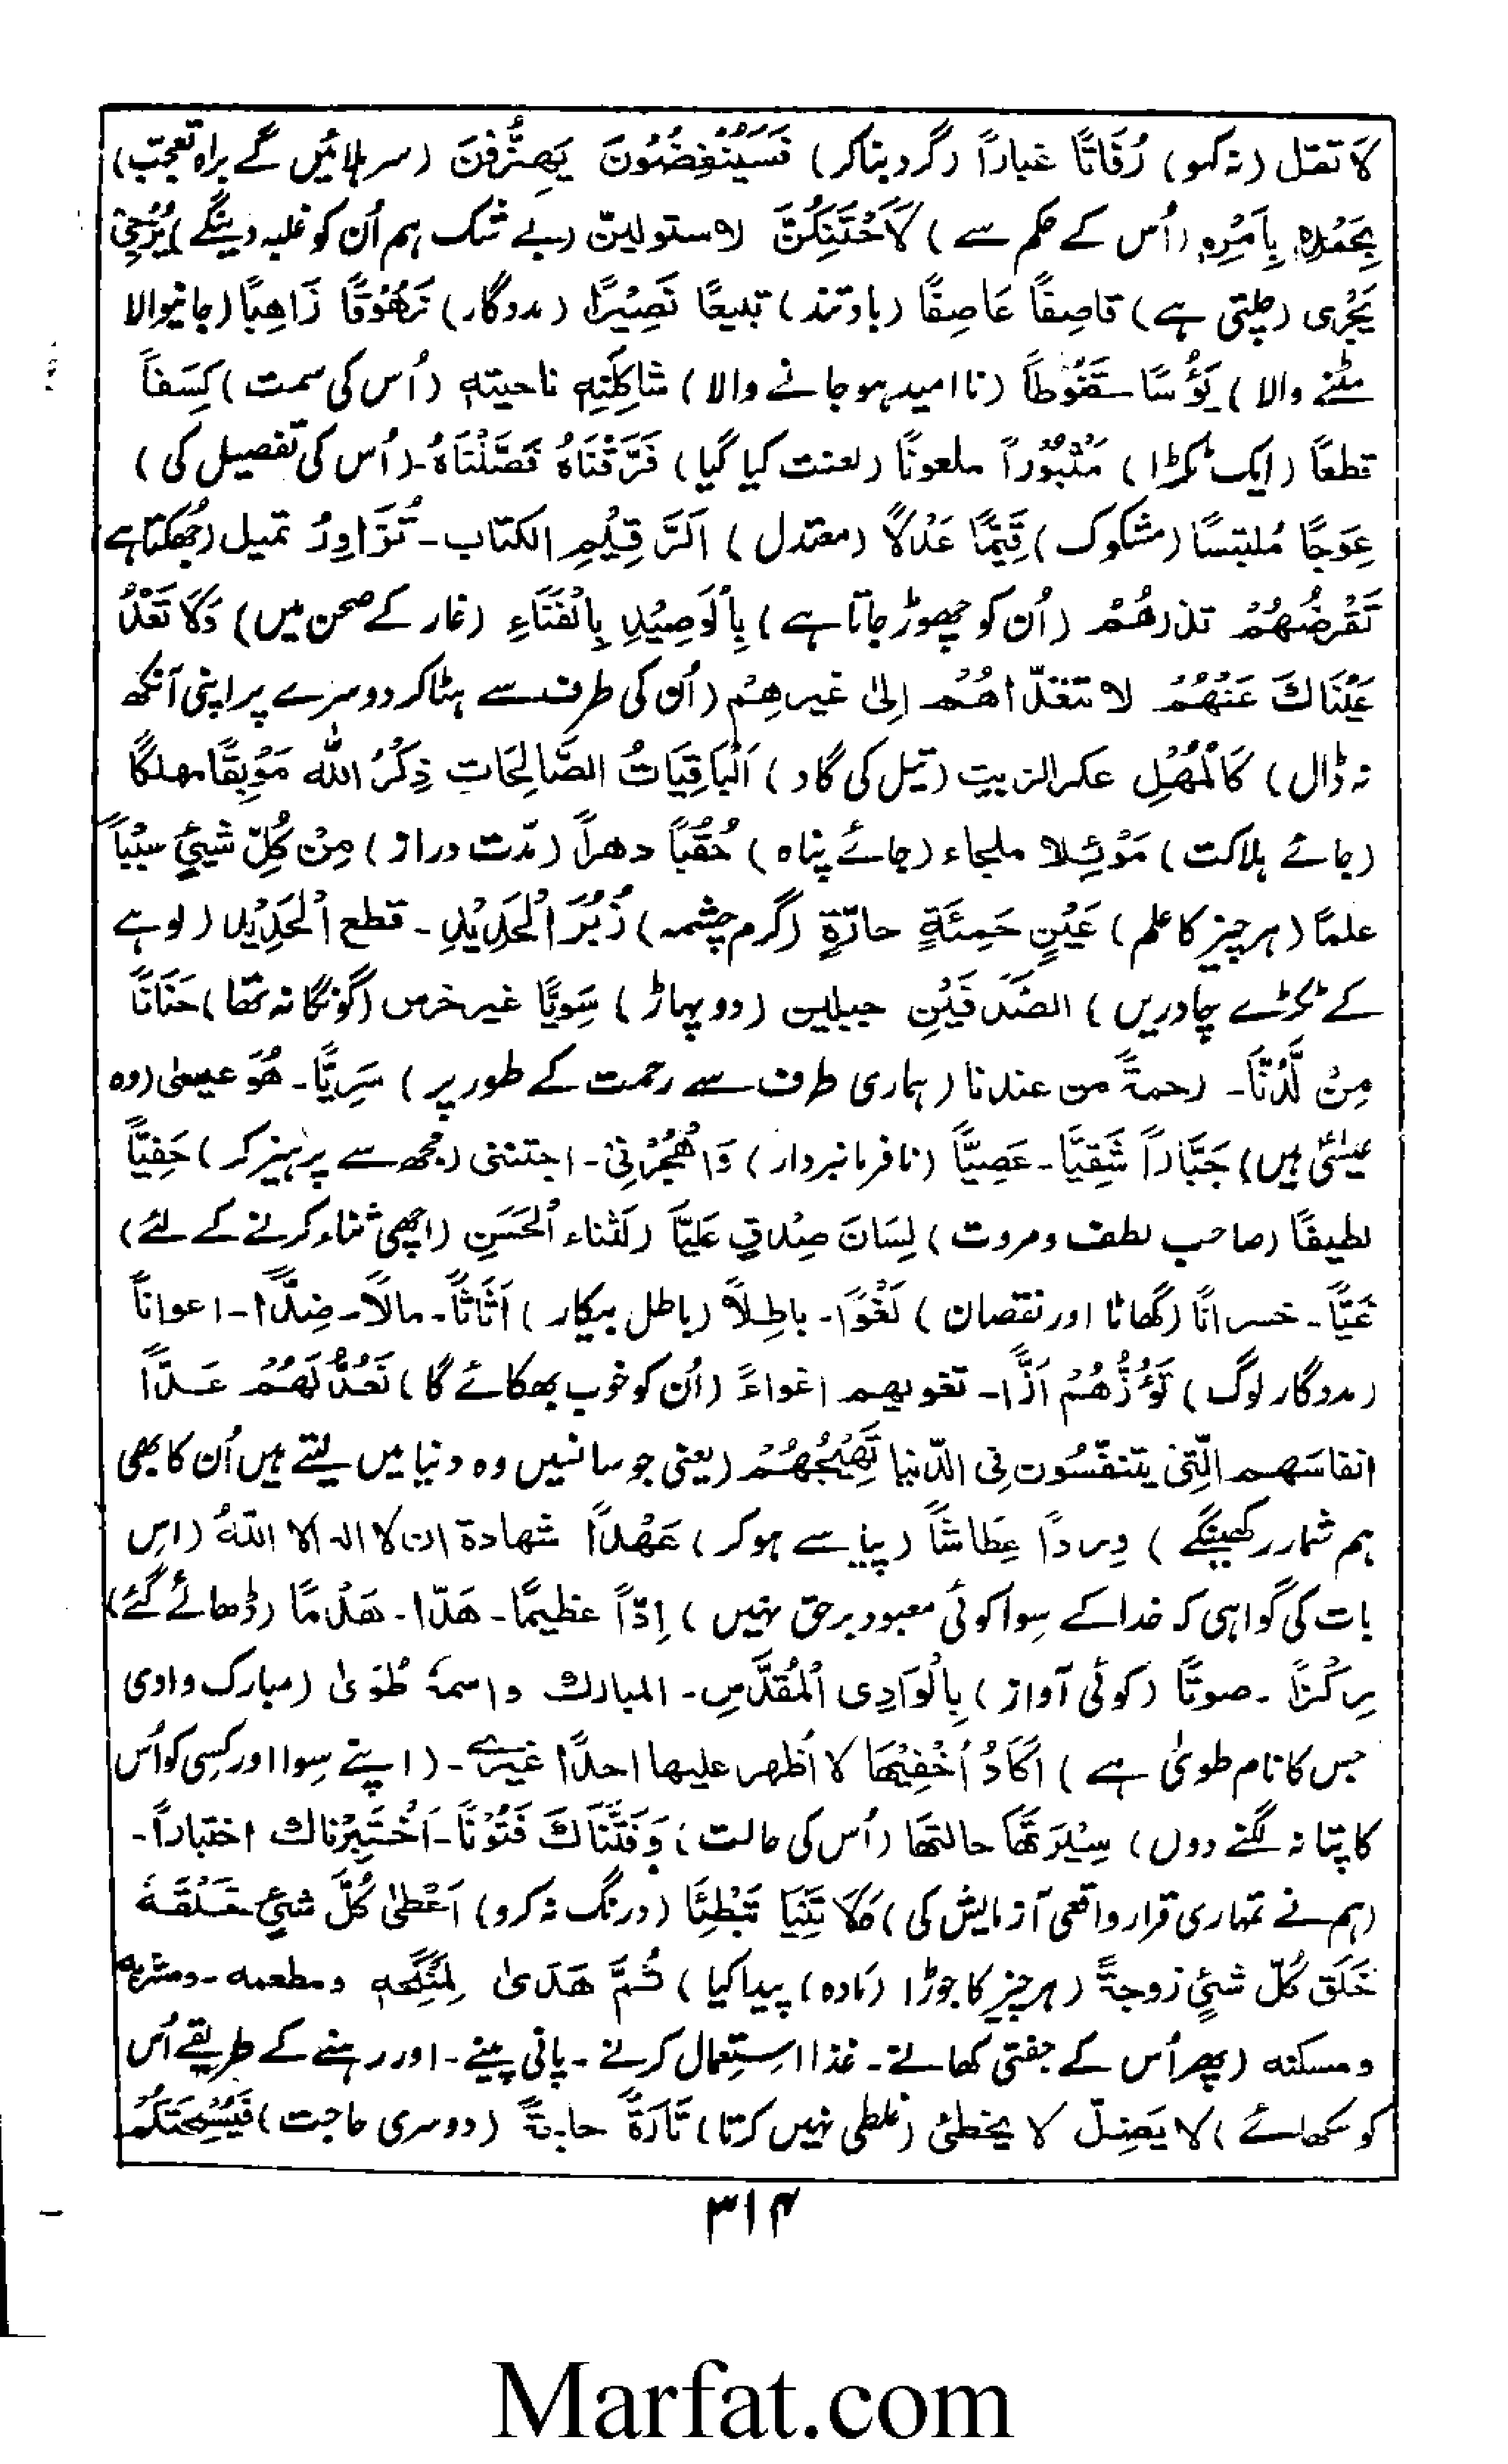 لَا تقل (نہ کہو) رُفَاتًا غباراً (گرد بناکر) فَسَيُنْغِضُونَ يَهِتَرُّفنَ (سر ہلائیں گے براہ تعجب)
بِحَمْدِهٖ بِاَمْرِهٖ (اُس کے حکم سے) لَاَحْتَنِكَنَّ لاستولینّ (بے شک ہم اُن کو غلبہ دینگے) يُزْجِیْ
يَجْرِی (چلتی ہے) قاصِفًا عَاصِفًا (باد تند) تبیعًا نَصِيْرًا (مددگار) زَهُوْقًا زَاهِبًا (جانیوالا
مٹنے والا) يَؤُسًا سقَنُوْطًا (نا امید ہو جانے والا) شَاكِلَتِهٖ ناحیتهٖ (اُس کی سمت) كِسَفاً
قطعاً (ایک ٹکڑا) مَثْبُوْراً ملعونًا (لعنت کیا گیا) فَرَّقْنَاهُ فَصَّلْنَاهُ۔ (اُس کی تفصیل کی)
عِوَجًا مُلتبسًا (مشکوک) قَيِّمًا عَدْلًا (معتدل) اَلرَّقِيْمِ الکتاب۔ تَزَاوِرُ تمیل (جھکتا ہے
تَقْرِضُهُمْ تذرهُمْ (اُن کو چھوڑ جاتا ہے) بِالْوَصِيْدِ بِالْفَنَاءِ (غار کے صحن میں) وَلَا تَعْدُ
عَيْنَاكَ عَنْهُمْ لا تتعدّاهُمْ اِلیٰ غیرهِمْ (اُن کی طرف سے ہٹا کر دوسرے پر اپنی آنکھ
نہ ڈال) كَالْمُهْلِ عکر الزیت (تیل کی گاد) اَلْبَاقِيَاتُ الصَّالِحَات ذِكْرُ اللّٰه مَوْبِقًا مهلكًا
(جائے ہلاکت) مَوْئِلا ملجاء (جائے پناہ) حُقُبًا دهراً (مدّت دراز) مِنْ كُلِّ شَیْئٍ سَبَبًا
علمًا (ہر چیز کا علم) عَيْنٍ حَمِئَةٍ حارّةٍ (گرم چشمہ) زُبُرَ الْحَدِيْدِ۔ قطع الْحَدِيْدِ (لوہے
کے ٹکڑے چادریں) الصَّدَفَيْنِ جبلین (دو پہاڑ) سَوِيًّا غیر خرس (گونگا نہ تھا) حَنَانًا
مِنْ لَّدُنَّا۔ رحمةً من عندنا (ہماری طرف سے رحمت کے طور پر) سَرِيًّا۔ هُوَ عیسیٰ (وہ
عیسیٰؑ ہیں) جَبَّاراً شَقِيًّا۔ عَصِيًّا (نافرمانبردار) وَاهْجُرْنِیْ۔ اجتننی (مجھ سے پرہیز کر) حَفِيًّا
لطیفًا (صاحب لطف و مروت) لِسَانَ صِدْقٍ عَلِيًّا (لَثناء الْحَسَنِ (اچھی ثناء کرنے کے لئے)
غَيًّا۔ خسرانًا (گھاٹا اور نقصان) لَغْوًا۔ باطِلاً (باطل بیکار) اَثَاثًا۔ مالًا۔ ضِدًّا۔ اعواناً
(مددگار لوگ) تَؤُزُّهُمْ اَزًّا۔ تغویهم اغواءً (اُن کو خوب بھکائے گا) نَعُدُّ لَهُمْ عَدًّا
انفاسَهم الّتی یتنفّسُون فی الدّنیا تُهَيِّجُهُمْ (یعنی جو سانسیں وہ دنیا میں لیتے ہیں اُن کا بھی
ہم شمار رکھینگے) وِرداً عِطَاشًا (پیاسے ہوکر) عَهْدًا شهادة ان لا اله الا اللهُ (اس
بات کی گواہی کہ خدا کے سِوا کوئی معبود برحق نہیں) اِدًّا عظیمًا۔ هَدّا۔ هَدْمًا (ڈھائے گئے)
رِكْزًا۔ صوتًا (کوئی آواز) بِالْوَادِی الْمُقَدَّسِ۔ المبارك واسمهٗ طُوًى (مبارک وادی
جس کا نام طویٰ ہے) اَكَادُ اُخْفِيْهَا لا اُظهر علیها احدًا غیرے۔ (اپنے سِوا اور کسی کو اُس
کا پتا نہ لگنے دوں) سِيْرَتَهَا حالتها (اُس کی حالت) وَفَتَنَّاكَ فُتُوْنًا۔ اَخْتَبِرْناك اختباراً۔
(ہم نے تمہاری قرار واقعی آزمایش کی) وَلَا تَنِيَا تَبْطِئَا (درنگ نہ کرو) اَعْطٰی كُلَّ شَیْئٍ خَلْقَهٗ
خَلَقَ كُلّ شَیْئٍ زوجةً (ہر چیز کا جوڑا (مادہ) پیدا کیا) ثُمَّ هَدٰی لِمَنْكَحِهٖ ومطعمه۔ ومشربه
ومسکنه (پھر اُس کے جفتی کھانے۔ غذا استعمال کرنے۔ پانی پینے۔ اور رہنے کے طریقے اُس
کو سکھائے) لا يَضِلّ لا یخطئ (غلطی نہیں کرتا) تَارَةً حاجةً (دوسری حاجت) فَيُسْحِتَكُمْ
۳۱۴
Marfat.com